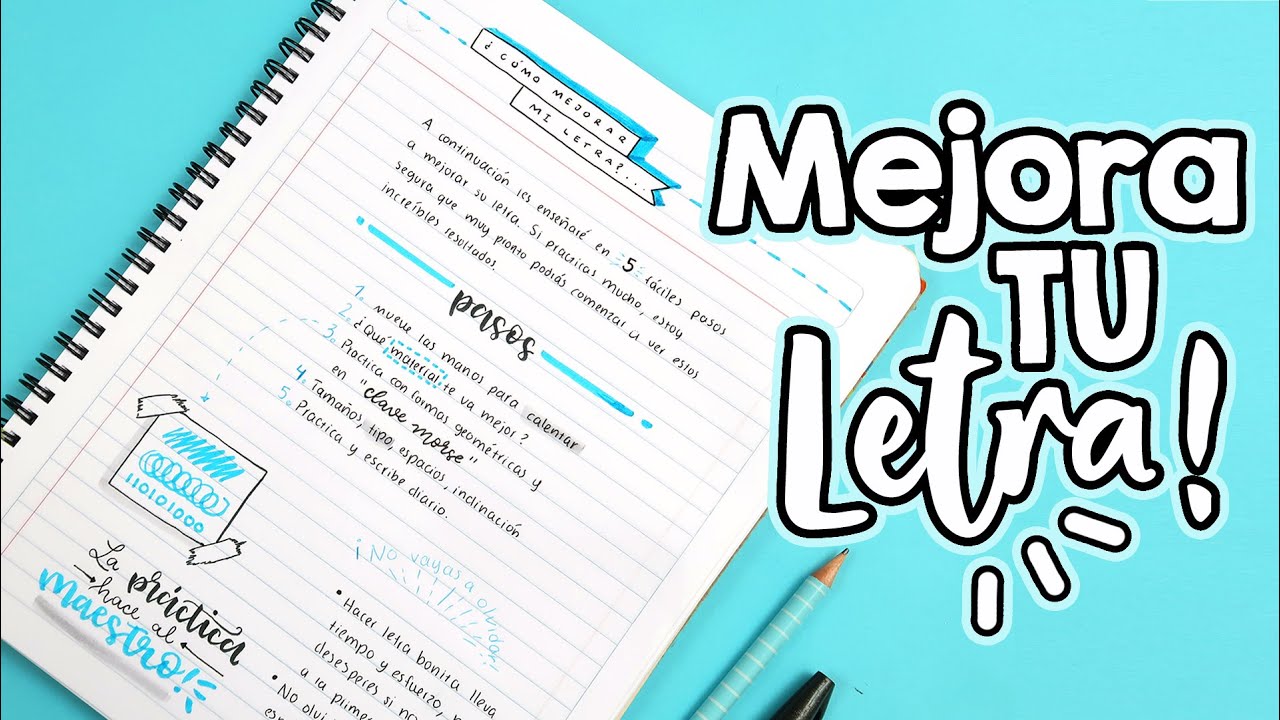 ¿CÓMO MEJORAR
MI LETRA?...
A continuación les enseñaré en 5 fáciles pasos
a mejorar su letra. Si practicas mucho, estoy
segura que muy pronto podrás comenzar a ver estos
increíbles resultados.
pasos
1. mueve las manos para calentar
2. ¿Qué material te va mejor?
3. Practica con formas geométricas y
en "clave morse"
4. Tamaños, tipo espacios, inclinación
5. Practica y escribe diario.
110101000
La práctica
hace al
maestro!
¡No vayas a olvidar
• Hacer letra bonita lleva
tiempo y esfuerzo,
desesperes si no
a la prime
• No olvi
Mejora
TU
Letra!